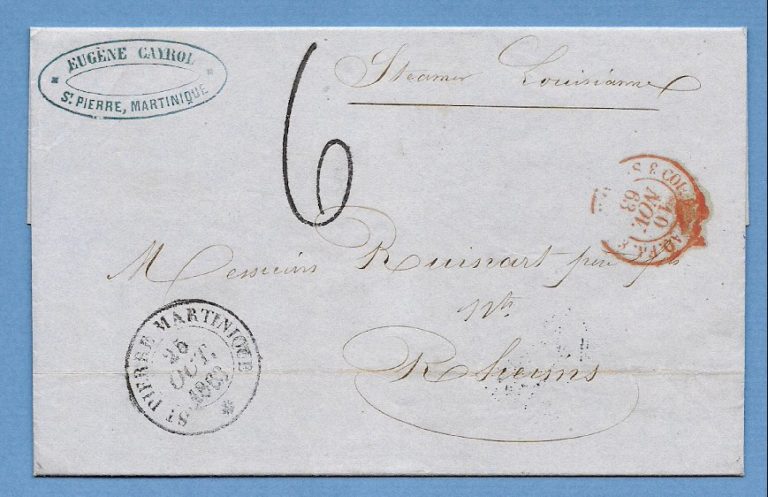 EUGÈNE CAYROL
St PIERRE, MARTINIQUE
6
Steamer Louisianne
& COL.
10
NOV.
63
Messieurs Ruinart père fils
Rheims
St PIERRE MARTINIQUE
25
OCT.
1863